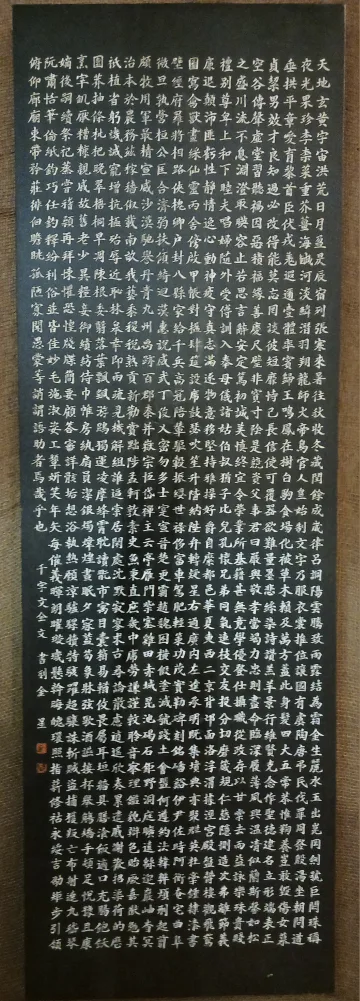 天地玄黃宇宙洪荒日月盈昃辰宿列張寒來暑往秋收冬藏閏餘成歲律呂調陽雲騰致雨露結為霜金生麗水玉出崑岡劍號巨闕珠稱
夜光果珍李柰菜重芥薑海鹹河淡鱗潛羽翔龍師火帝鳥官人皇始制文字乃服衣裳推位讓國有虞陶唐弔民伐罪周發殷湯坐朝問道
垂拱平章愛育黎首臣伏戎羌遐邇壹體率賓歸王鳴鳳在樹白駒食場化被草木賴及萬方蓋此身髮四大五常恭惟鞠養豈敢毀傷女慕
貞絜男效才良知過必改得能莫忘罔談彼短靡恃己長信使可覆器欲難量墨悲絲染詩讚羔羊景行維賢克念作聖德建名立形端表正
空谷傳聲虛堂習聽禍因惡積福緣善慶尺璧非寶寸陰是競資父事君曰嚴與敬孝當竭力忠則盡命臨深履薄夙興溫凊似蘭斯馨如松
之盛川流不息淵澄取映容止若思言辭安定篤初誠美慎終宜令榮業所基籍甚無竟學優登仕攝職從政存以甘棠去而益詠樂殊貴賤
禮別尊卑上和下睦夫唱婦隨外受傅訓入奉母儀諸姑伯叔猶子比兒孔懷兄弟同氣連枝交友投分切磨箴規仁慈隱惻造次弗離節義
廉退顛沛匪虧性靜情逸心動神疲守真志滿逐物意移堅持雅操好爵自縻都邑華夏東西二京背邙面洛浮渭據涇宮殿盤鬱樓觀飛驚
圖寫禽獸畫綵仙靈丙舍傍啟甲帳對楹肆筵設席鼓瑟吹笙升階納陛弁轉疑星右通廣內左達承明既集墳典亦聚群英杜稿鍾隸漆書
壁經府羅將相路俠槐卿戶封八縣家給千兵高冠陪輦驅轂振纓世祿侈富車駕肥輕策功茂實勒碑刻銘磻溪伊尹佐時阿衡奄宅曲阜
微旦孰營桓公匡合濟弱扶傾綺迴漢惠說感武丁俊乂密勿多士寔寧晉楚更霸趙魏困橫假途滅虢踐土會盟何遵約法韓弊煩刑起翦
頗牧用軍最精宣威沙漠馳譽丹青九州禹跡百郡秦并嶽宗恒岱禪主云亭雁門紫塞雞田赤城昆池碣石鉅野洞庭曠遠綿邈巖岫杳冥
治本於農務茲稼穡俶載南畝我藝黍稷稅熟貢新勸賞黜陟孟軻敦素史魚秉直庶幾中庸勞謙謹敕聆音察理鑑貌辨色貽厥嘉猷勉其
祗植省躬譏誡寵增抗極殆辱近恥林皋幸即兩疏見機解組誰逼索居閑處沈默寂寥求古尋論散慮逍遙欣奏累遣慼謝歡招渠荷的歷
園莽抽條枇杷晚翠梧桐早凋陳根委翳落葉飄颻游鵾獨運凌摩絳霄耽讀翫市寓目囊箱易輶攸畏屬耳垣牆具膳飡飯適口充腸飽飫
烹宰飢厭糟糠親戚故舊老少異糧妾御績紡侍巾帷房紈扇圓潔銀燭煒煌晝眠夕寐藍筍象牀弦歌酒讌接杯舉觴矯手頓足悅豫且康
嫡後嗣續祭祀蒸嘗稽顙再拜悚懼恐惶牋牒簡要顧答審詳骸垢想浴執熱願涼驢騾犢特駭躍超驤誅斬賊盜捕獲叛亡布射遼丸嵇琴
阮嘯恬筆倫紙鈞巧任釣釋紛利俗並皆佳妙毛施淑姿工顰妍笑年矢每催羲暉朗曜璇璣懸斡晦魄環照指薪修祜永綏吉劭矩步引領
俯仰廊廟束帶矜莊徘徊瞻眺孤陋寡聞愚蒙等誚謂語助者焉哉乎也 千字文全文 書刻金星